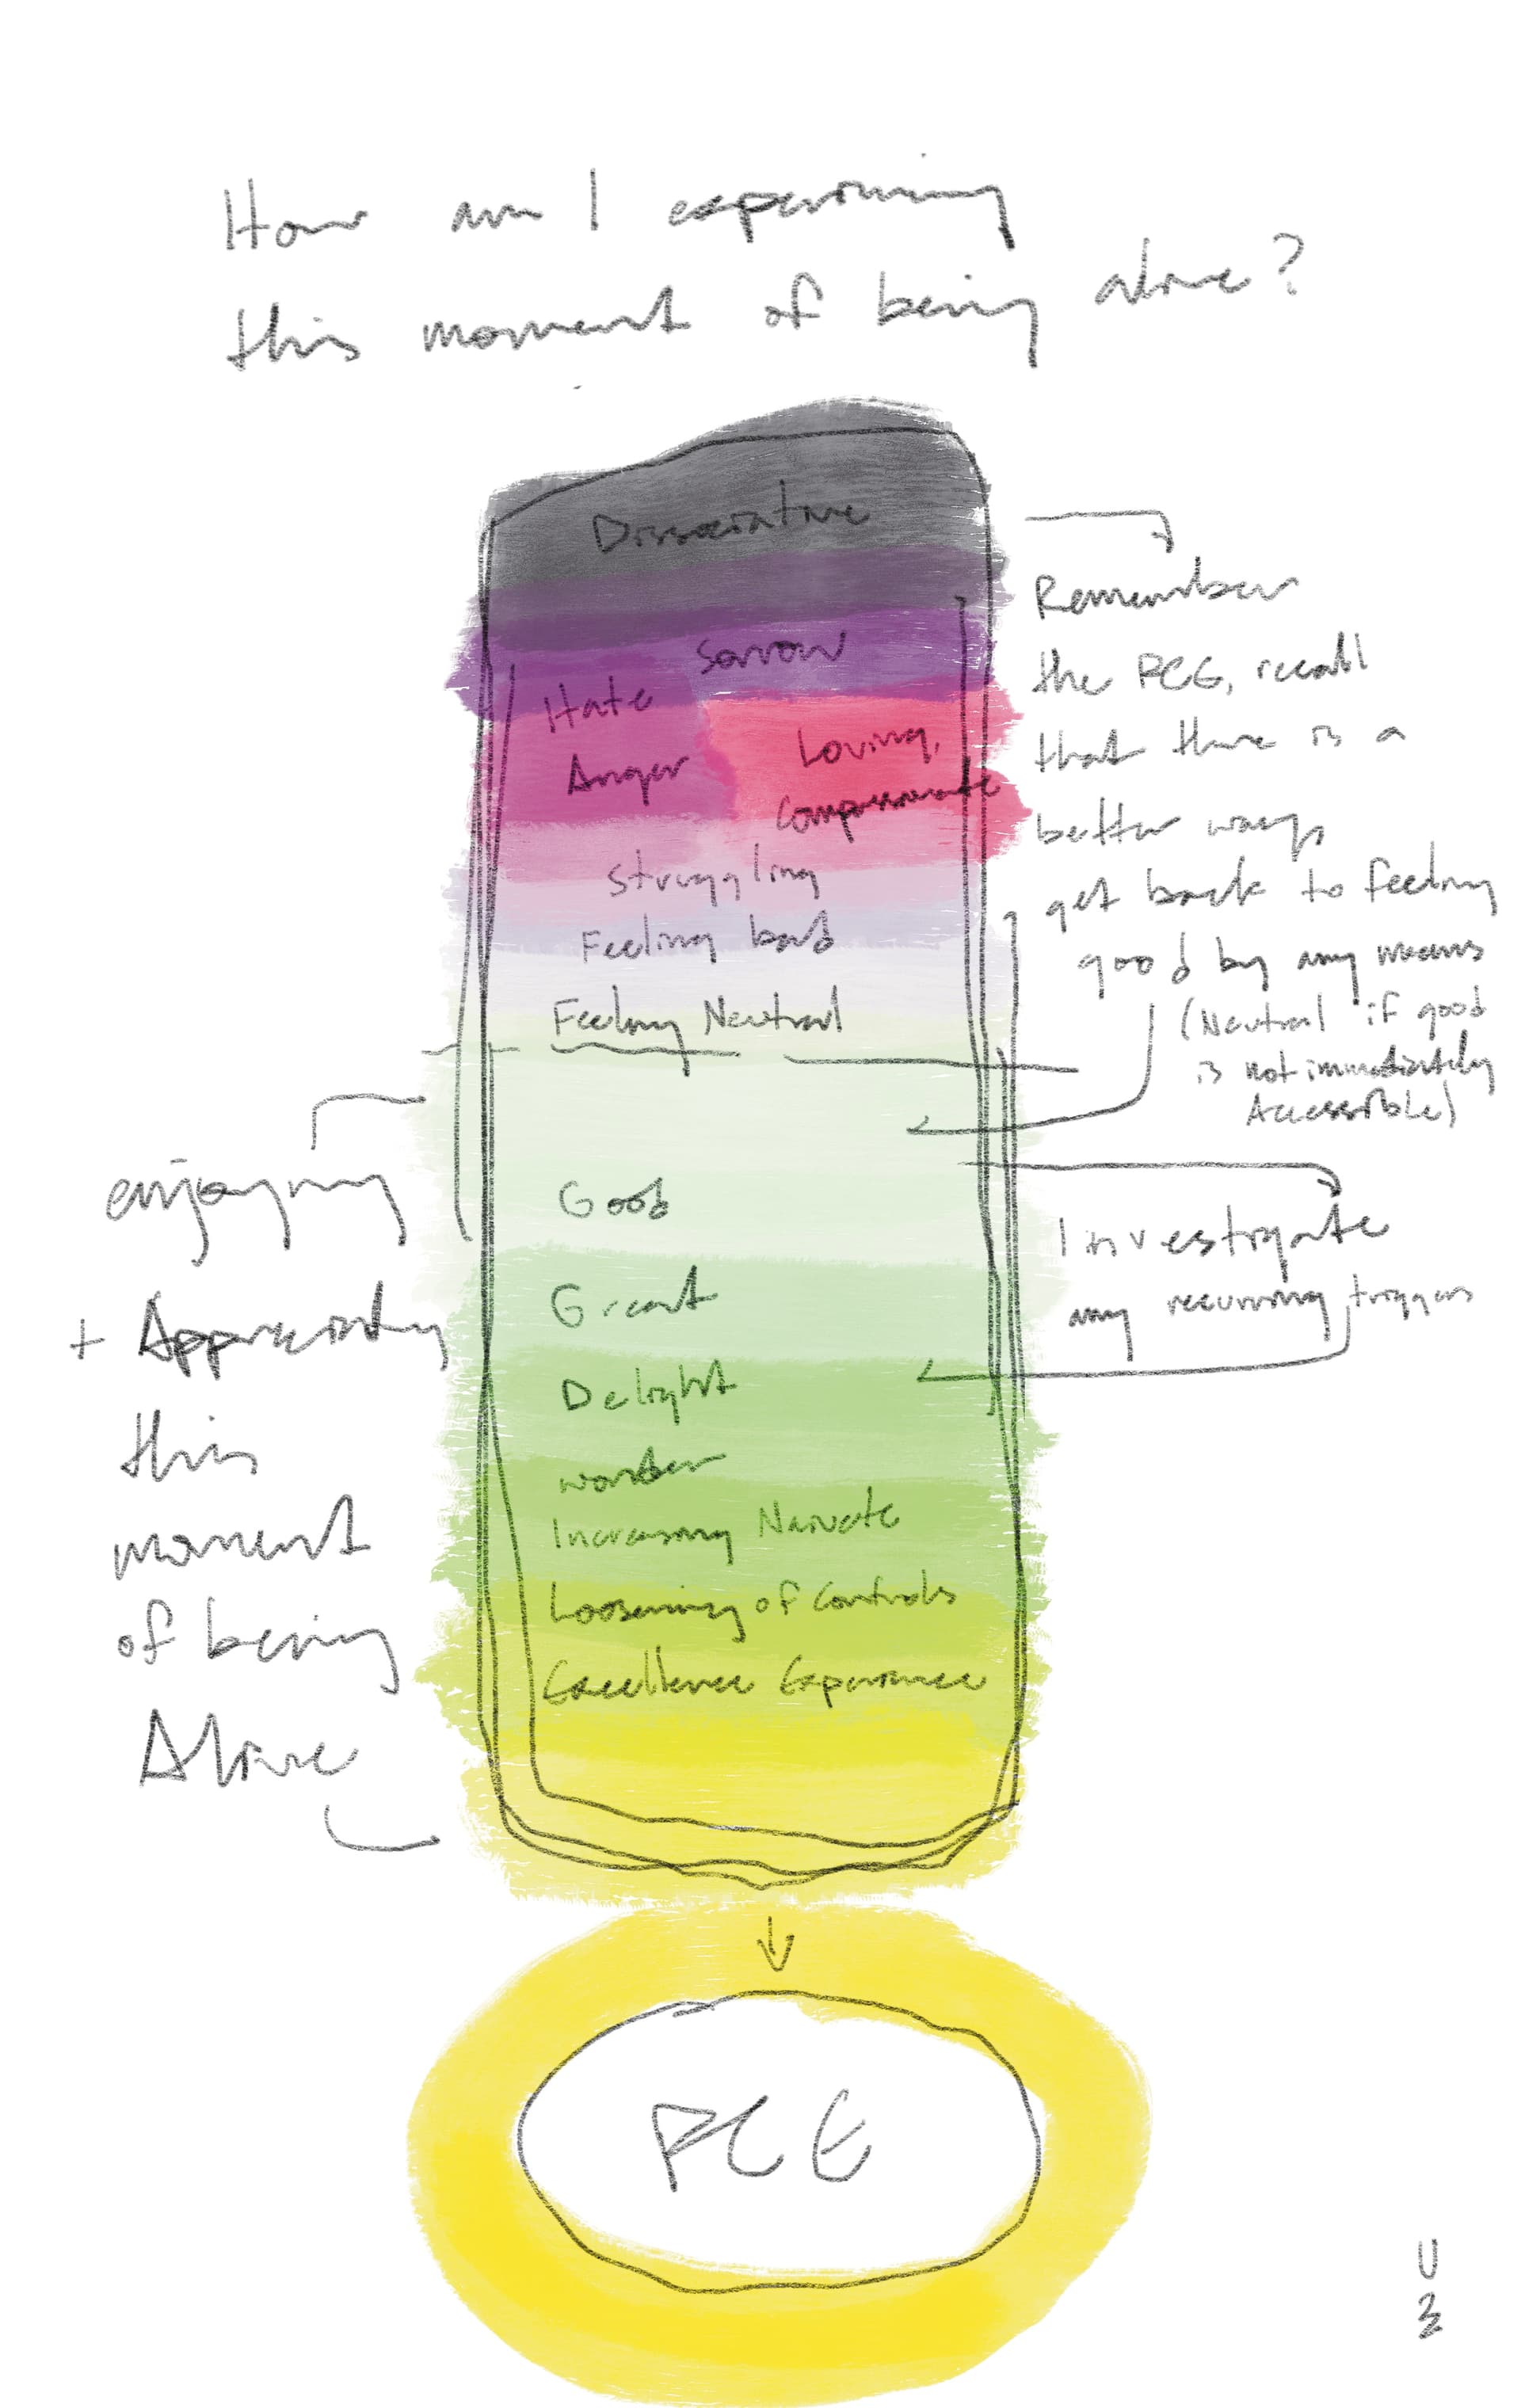 How am I experiencing
this moment of being alive?
Dissociative
Sorrow
Hate
Anger
Loving,
Compassionate
Struggling
Feeling bad
Feeling Neutral
Good
Great
Delight
wonder
Increasing Naivete
Loosening of Controls
Excellence Experience
Remember
the PCE, recall
that there is a
better way,
get back to feeling
good by any means
(Neutral if good
is not immediately
Accessible)
Investigate
any recurring triggers
enjoying
+ Appreciating
this
moment
of being
Alive
PCE
U